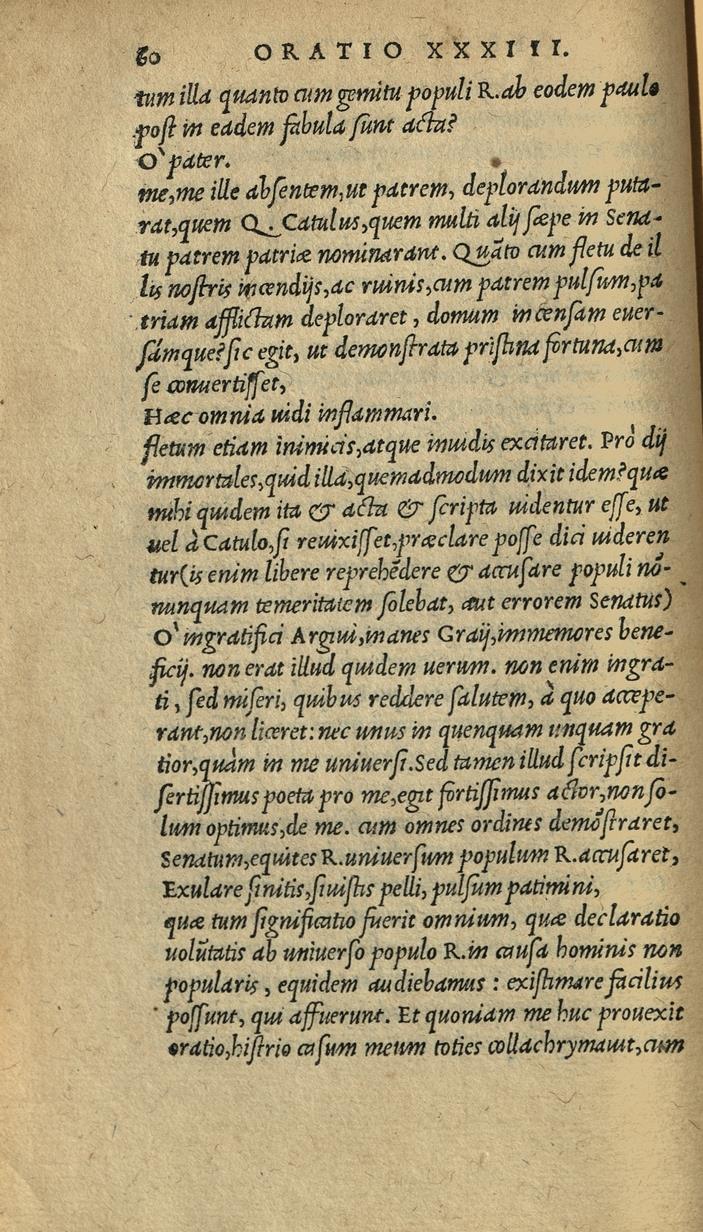 60 ORATIO XXXIII.
tum illa quanto cum gemitu populi R.ab eodem paulo
post in eadem fabula sunt acta?
O` pater.
me,me ille absentem,ut patrem, deplorandum puta-
rat,quem Q. Catulus,quem multi alij sæpe in Sena-
tu patrem patriæ nominarant. Quāto cum fletu de il
lis nostris incendijs,ac ruinis,cum patrem pulsum,pa
triam afflictam deploraret, domum incensam euer-
sámque?sic egit, ut demonstrata pristina fortuna,cum
se conuertisset,
Hæc omnia uidi inflammari.
fletum etiam inimicis,atque inuidis excitaret. Prò dij
immortales,quid illa,quemadmodum dixit idem?quæ
mihi quidem ita & acta & scripta uidentur esse, ut
uel à Catulo,si reuixisset,præclare posse dici uideren
tur(is enim libere reprehēdere & accusare populi nō-
nunquam temeritatem solebat, aut errorem Senatus)
O` ingratifici Argiui,inanes Graij,immemores bene-
ficij. non erat illud quidem uerum. non enim ingra-
ti, sed miseri, quibus reddere salutem, à quo accepe-
rant,non liceret:nec unus in quenquam unquam gra
tior,quàm in me uniuersi.Sed tamen illud scripsit di-
sertissimus poeta pro me,egit fortissimus actor,non so-
lum optimus,de me. cum omnes ordines demōstraret,
Senatum,equites R.uniuersum populum R.accusaret,
Exulare sinitis,siuistis pelli, pulsum patimini,
quæ tum significatio fuerit omnium, quæ declaratio
uolūtatis ab uniuerso populo R.in causa hominis non
popularis, equidem audiebamus : existimare facilius
possunt, qui affuerunt. Et quoniam me huc prouexit
oratio,histrio casum meum toties collachrymauit,cum